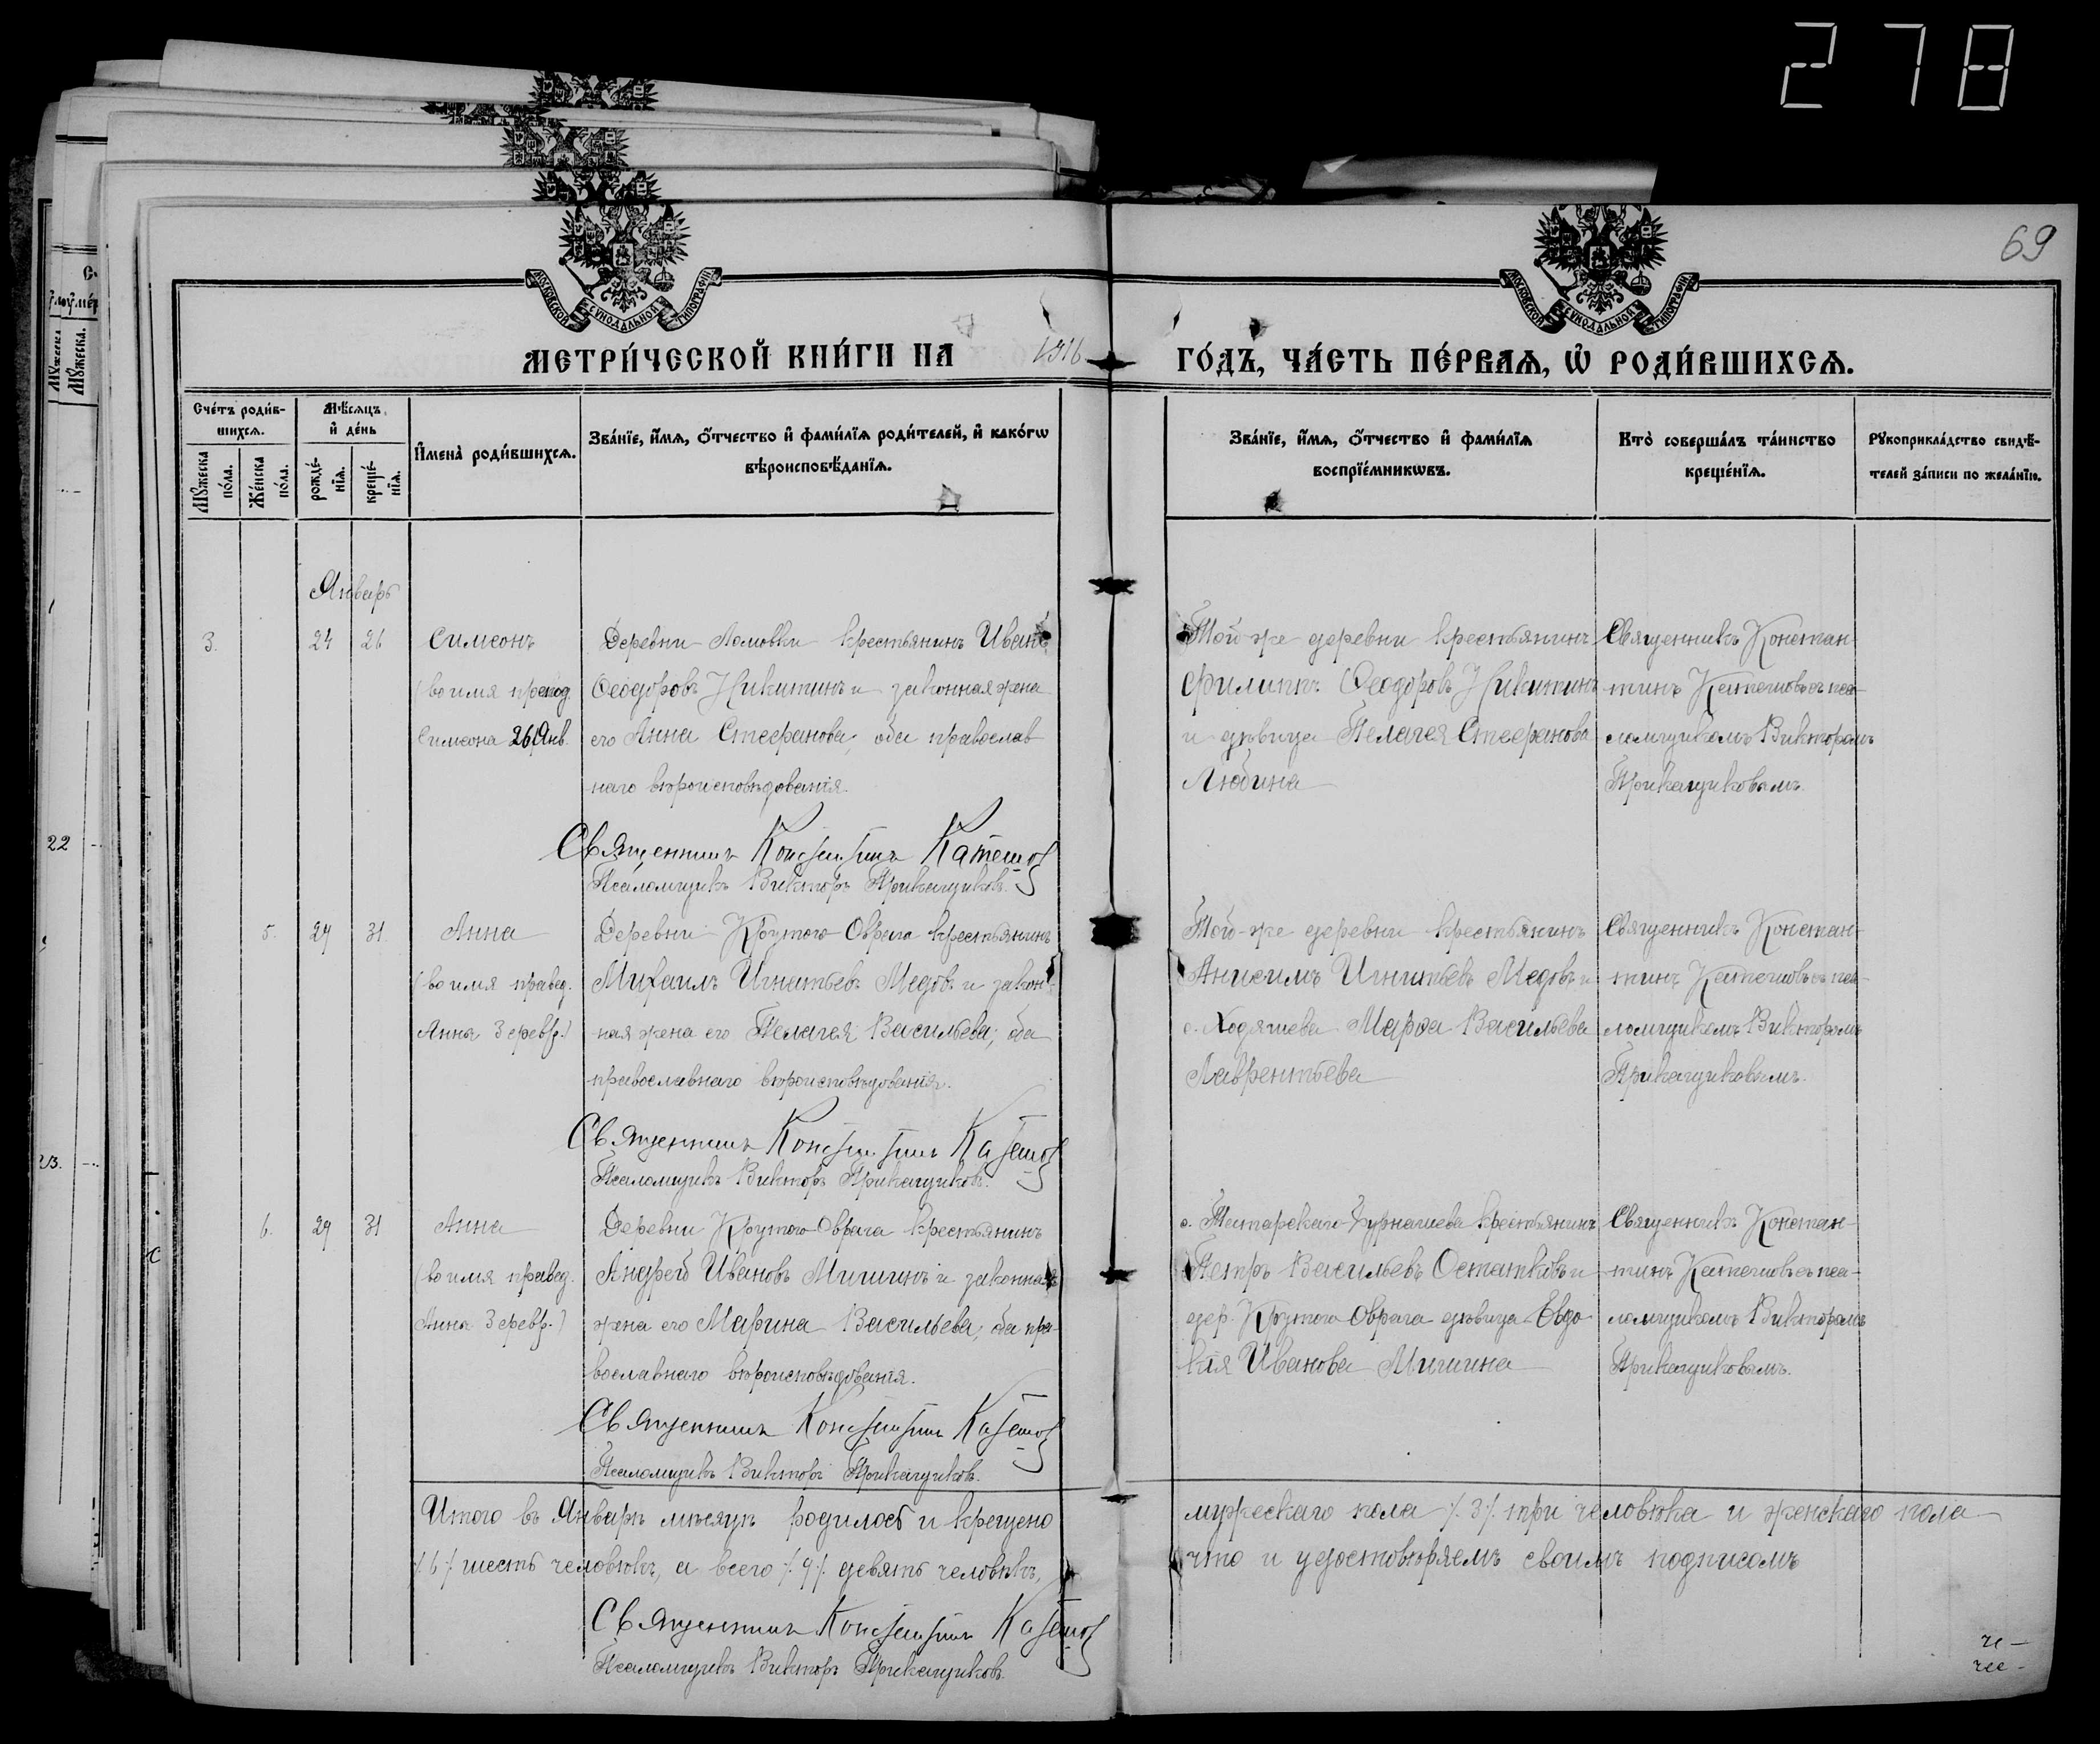 278
69
МОСКОВСКОЙ СУНОДАЛЬНОЙ ТИПОГРАФІИ
МОСКОВСКОЙ СУНОДАЛЬНОЙ ТИПОГРАФІИ
МЕТРИ́ЧЕСКОЙ КНИ́ГИ НА 1916 ГО́ДЪ, ЧА́СТЬ ПЕ́РВАѦ, Ѿ РОДИ́ВШИХСѦ.
Сче́тъ роди́в-
шихсѧ.
Мѣ́сѧцъ
и҆ де́нь
Мꙋ́жеска
по́ла.
Же́нска
по́ла.
рожде́-
нїѧ.
креще́-
нїѧ.
И҆мена̀ роди́вшихсѧ.
Зва́нїе, и҆́мѧ, ѻ҆́тчество и҆ фами́лїѧ роди́телей, и҆ како́гѡ
вѣроисповѣ́данїѧ.
Зва́нїе, и҆́мѧ, ѻ҆́тчество и҆ фами́лїѧ
воспрїе́мникѡвъ.
Кто̀ соверша́лъ та́инство
креще́нїѧ.
Рꙋкоприкла́дство свидѣ́-
телей за́писи по жела́нїю.
Январь
3. 24 26 Симеонъ
(во имя препод.
Симеона 26 Янв.
Деревни Ломовки крестьянинъ Иванъ
Ѳеодоровъ Никитинъ и законная жена
его Анна Стефанова, оба православ
наго вѣроисповѣдованія.
Священникъ Константинъ Катешов
Псаломщикъ Викторъ Прикащиковъ.
Той-же деревни крестьянинъ
Филиппъ Ѳеодоровъ Никитинъ
и дѣвица Пелагея Стефанова
Любина
Священникъ Констан-
тинъ Катешовъ съ пса-
ломщикомъ Викторомъ
Прикащиковымъ.
5. 29 31 Анна
(во имя правед.
Анны 3 февр.)
Деревни Крутого Оврага крестьянинъ
Михаилъ Игнатьевъ Медовъ и закон-
ная жена его Пелагея Васильева, оба
православнаго вѣроисповѣдованія.
Священникъ Константинъ Катешов
Псаломщикъ Викторъ Прикащиковъ.
Той-же деревни крестьянинъ
Анисимъ Игнатьевъ Медовъ и
с. Ходяшева Марѳа Васильева
Лаврентьева
Священникъ Констан-
тинъ Катешовъ съ пса-
ломщикомъ Викторомъ
Прикащиковымъ.
6. 29 31 Анна
(во имя правед.
Анны 3 февр.)
Деревни Крутого Оврага крестьянинъ
Андрей Ивановъ Мишинъ и законная
жена его Марина Васильева, оба пра-
вославнаго вѣроисповѣдованія.
Священникъ Константинъ Катешов
Псаломщикъ Викторъ Прикащиковъ.
с. Татарскаго Бурнашева крестьянинъ
Петръ Васильевъ Остатковъ и
дер. Крутого Оврага дѣвица Евдо
кія Иванова Мишина
Священникъ Констан-
тинъ Катешовъ съ пса-
ломщикомъ Викторомъ
Прикащиковымъ.
Итого въ Январѣ мѣсяцѣ родилось и крещено мужескаго пола ./. 3 ./. три человѣка и женскаго пола
./. 6 ./. шесть человѣкъ, а всего ./. 9 ./. девять человѣкъ, что и удостовѣряемъ своимъ подписомъ
Священникъ Константинъ Катешов
Псаломщикъ Викторъ Прикащиковъ.
22
23.